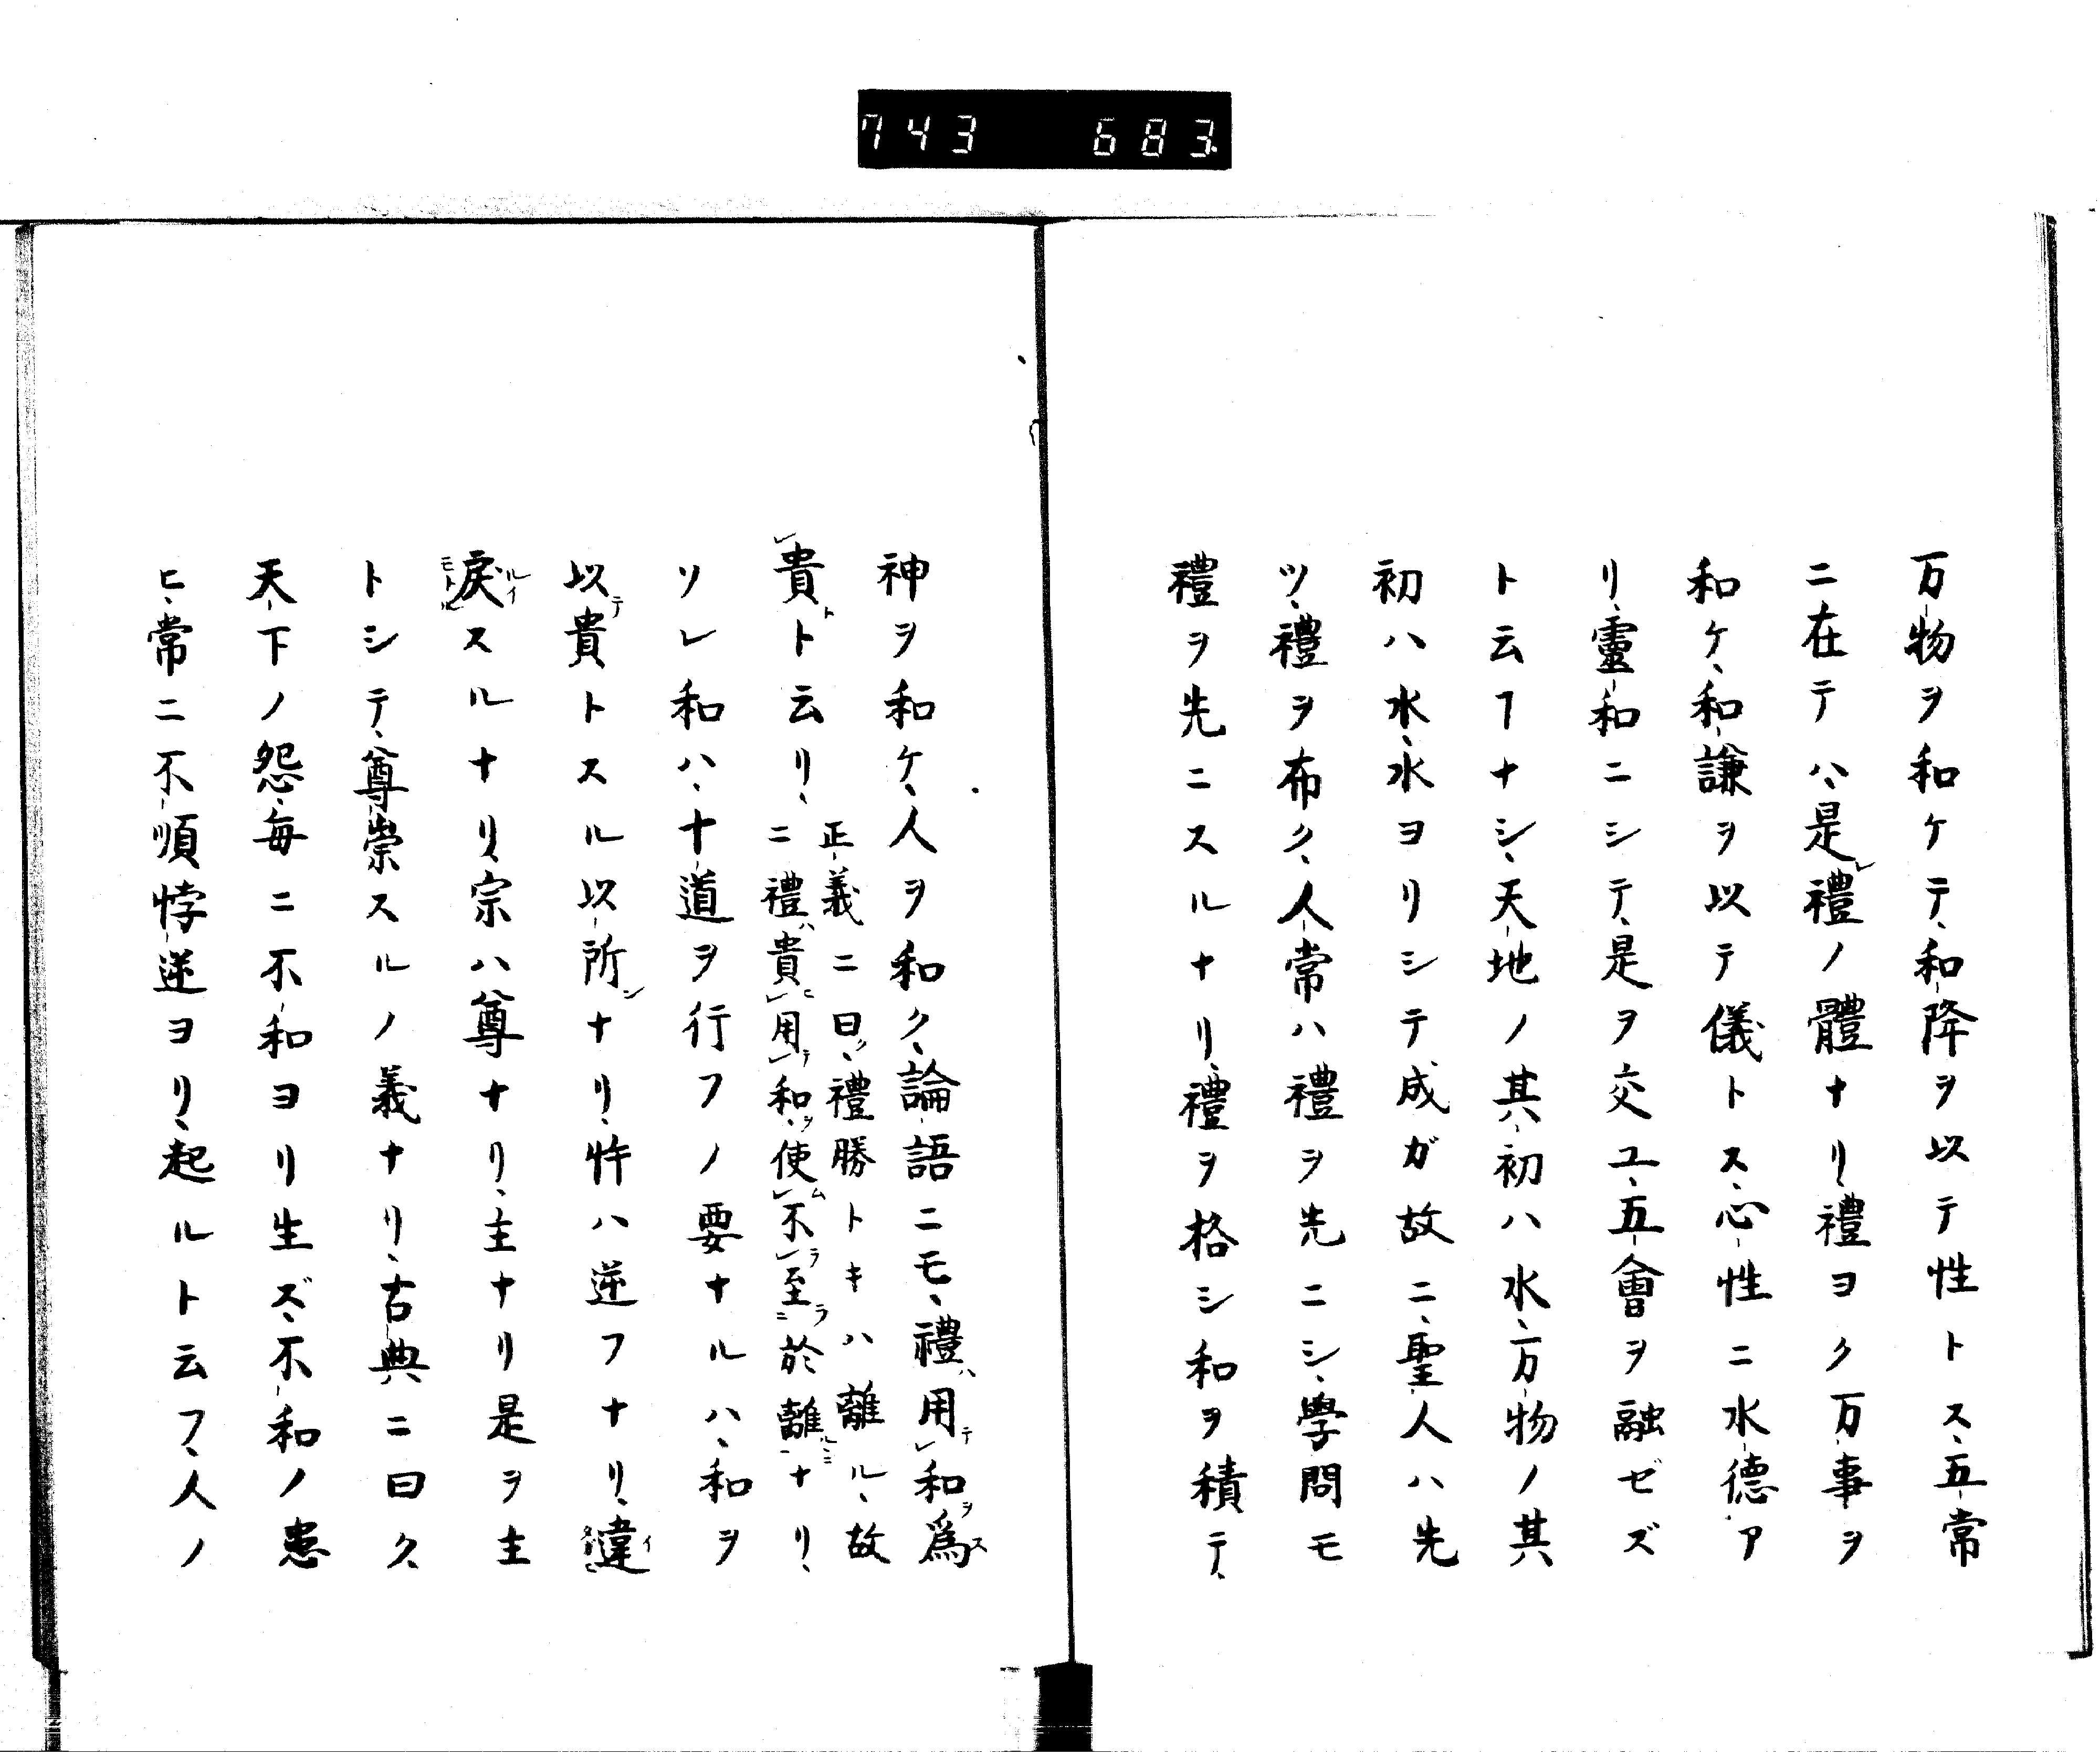 743 683
万物ヲ和ケテ、和降ヲ以テ性トス、五常
ニ在テハ、是レ禮ノ體ナリ、禮ヨク万事ヲ
和ケ、和謙ヲ以テ儀トス、心性ニ水德ア
リ、靈和ニシテ、是ヲ交ユ、五會ヲ融ゼズ
ト云フナシ、天地ノ其初ハ水、万物ノ其
初ハ水、水ヨリシテ成ガ故ニ、聖人ハ先
ツ、禮ヲ布ク、人常ハ禮ヲ先ニシ、學問モ
禮ヲ先ニスルナリ、禮ヲ格シ和ヲ積テ、
神ヲ和ケ、人ヲ和ク、論語ニモ、禮ハ用テレ和ヲ爲ス
レ貴トト云リ、正義ニ曰ク、禮勝トキハ離ル、故
ニ禮ハ貴ニレ用テレ和ヲ、使ムレ不ラレ至ラニ於離ルニ一ナリ、
ソレ和ハ、十道ヲ行フノ要ナルハ、和ヲ
以テ貴トスル以所ンナリ、忤ハ逆フナリ、違イ
戾ルイモトルスルナリ、宗ハ尊ナリ、主ナリ是ヲ主
トシテ、尊崇スルノ義ナリ、古典ニ曰ク、
天下ノ怨、毎ニ不和ヨリ生ズ、不和ノ患
ヒ、常ニ不順悖逆ヨリ、起ルト云フ、人ノ